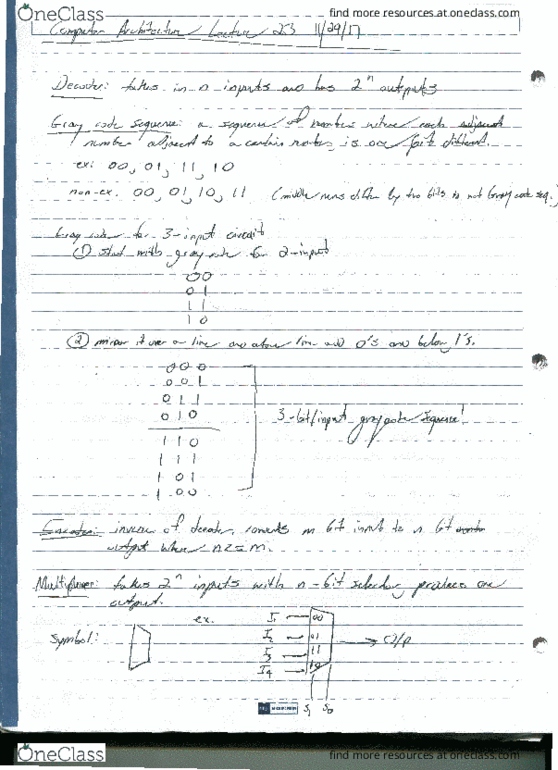 OneClass find more resources at oneclass.com
Computer Architecture Lecture 23 11/29/17
Decoder: takes in n inputs and has 2^n outputs
Gray code sequence: a sequence of numbers where each adjacent
number adjacent to a certain number, is one bit different.
ex: 00, 01, 11, 10
non-ex. 00, 01, 10, 11 (middle nums differ by two bits so not Gray code seq.)
Gray code for 3-input circuit
① start with gray code for 2-input
00
01
11
10
② mirror it over a line and above line add 0's and below 1's.
000
001
011
010
110
111
101
100
3-bit/input gray code sequence!
Encoder: inverse of decoder, converts m bit input to n bit
output where n<=m.
Multiplexer: takes 2^n inputs with n-bit selector, produces one
output.
Symbol:
ex.
I1 00
I2 01
I3 11
I4 10
O/P
S1 S0
OneClass find more resources at oneclass.com